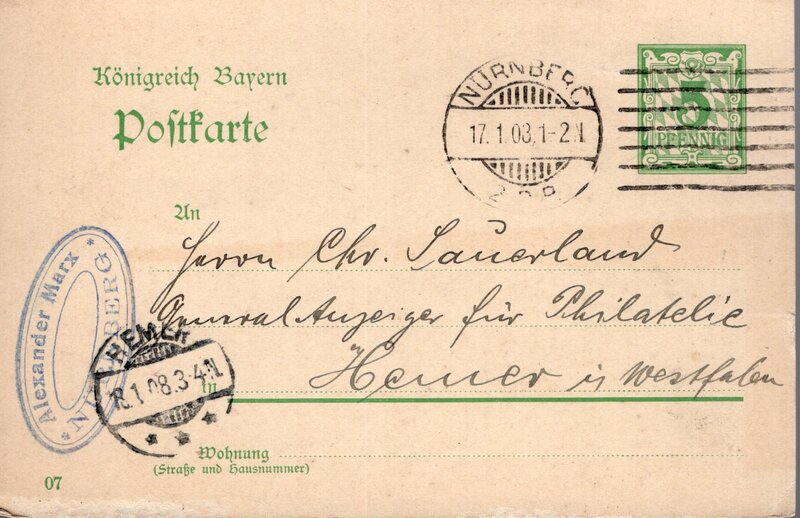 Königreich Bayern
Postkarte
NÜRNBERG
17. 1. 08. 1-2 N
2. B.P.
5
PFENNIG
An
Herrn Chr. Sauerland
General Anzeiger für Philatelie
in Hemer i/Westfalen
Alexander Marx
NÜRNBERG
HEMER
18.1.08.3-4.N.
Wohnung
(Straße und Hausnummer)
07